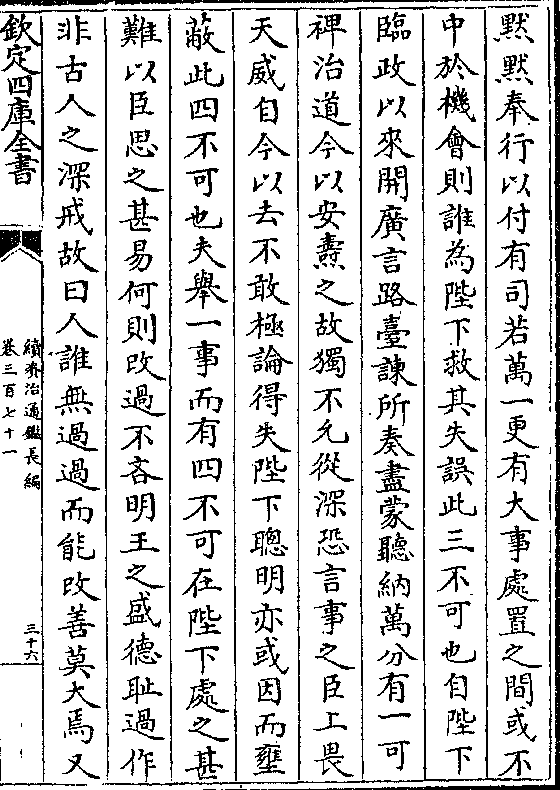 黙黙奉行以付有司若萬一更有大事處置之間或不
中於機會則誰為陛下救其失誤此三不可也自陛下
臨政以來開廣言路臺諫所奏盡蒙聽納萬分有一可
禆治道今以安燾之故獨不允從深恐言事之臣上畏
天威自今以去不敢極論得失陛下聰明亦或因而壅
蔽此四不可也夫舉一事而有四不可在陛下處之甚
難以臣思之甚易何則改過不吝明王之盛德恥過作
非古人之深戒故曰人誰無過過而能改善莫大焉又
欽定四庫全書
續資治通鑑長編
卷三百七十一
三十六